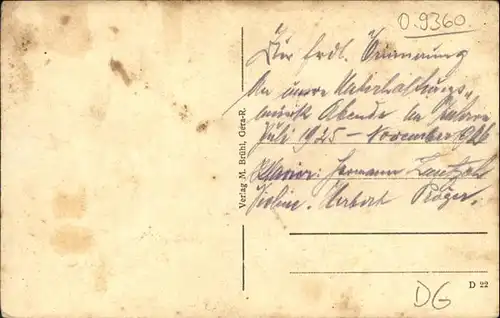 0.9360
Zur frdl. Erinnerung
An unsere Unterhaltungs-
musik Abende im Jahre
Juli 1925 – November 1926
Klavier: Hermann
Violine: Herbert Röger.
Verlag M. Brühl, Gera-R.
D 22
DG